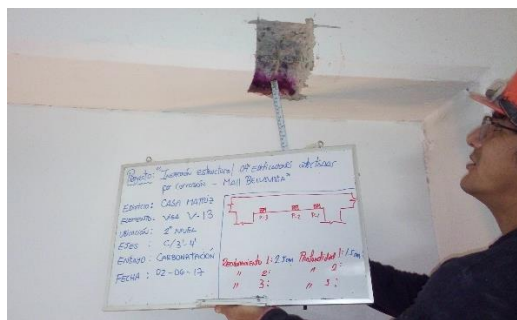 Proyecto: "Inspección estructural de edificaciones afectadas
por corrosión - Mall Bellavista"
EDIFICIO: CASA MATRIZ
ELEMENTO: VIGA V-13
UBICACIÓN: 2° NIVEL
EJES: C/3'-4'
ENSAYO: CARBONATACIÓN
FECHA: 02-06-17
P-3 P-2 P-1
Recubrimiento 1: 2.5cm Profundidad 1: 1.5cm
" 2: " 2:
" 3: " 3: